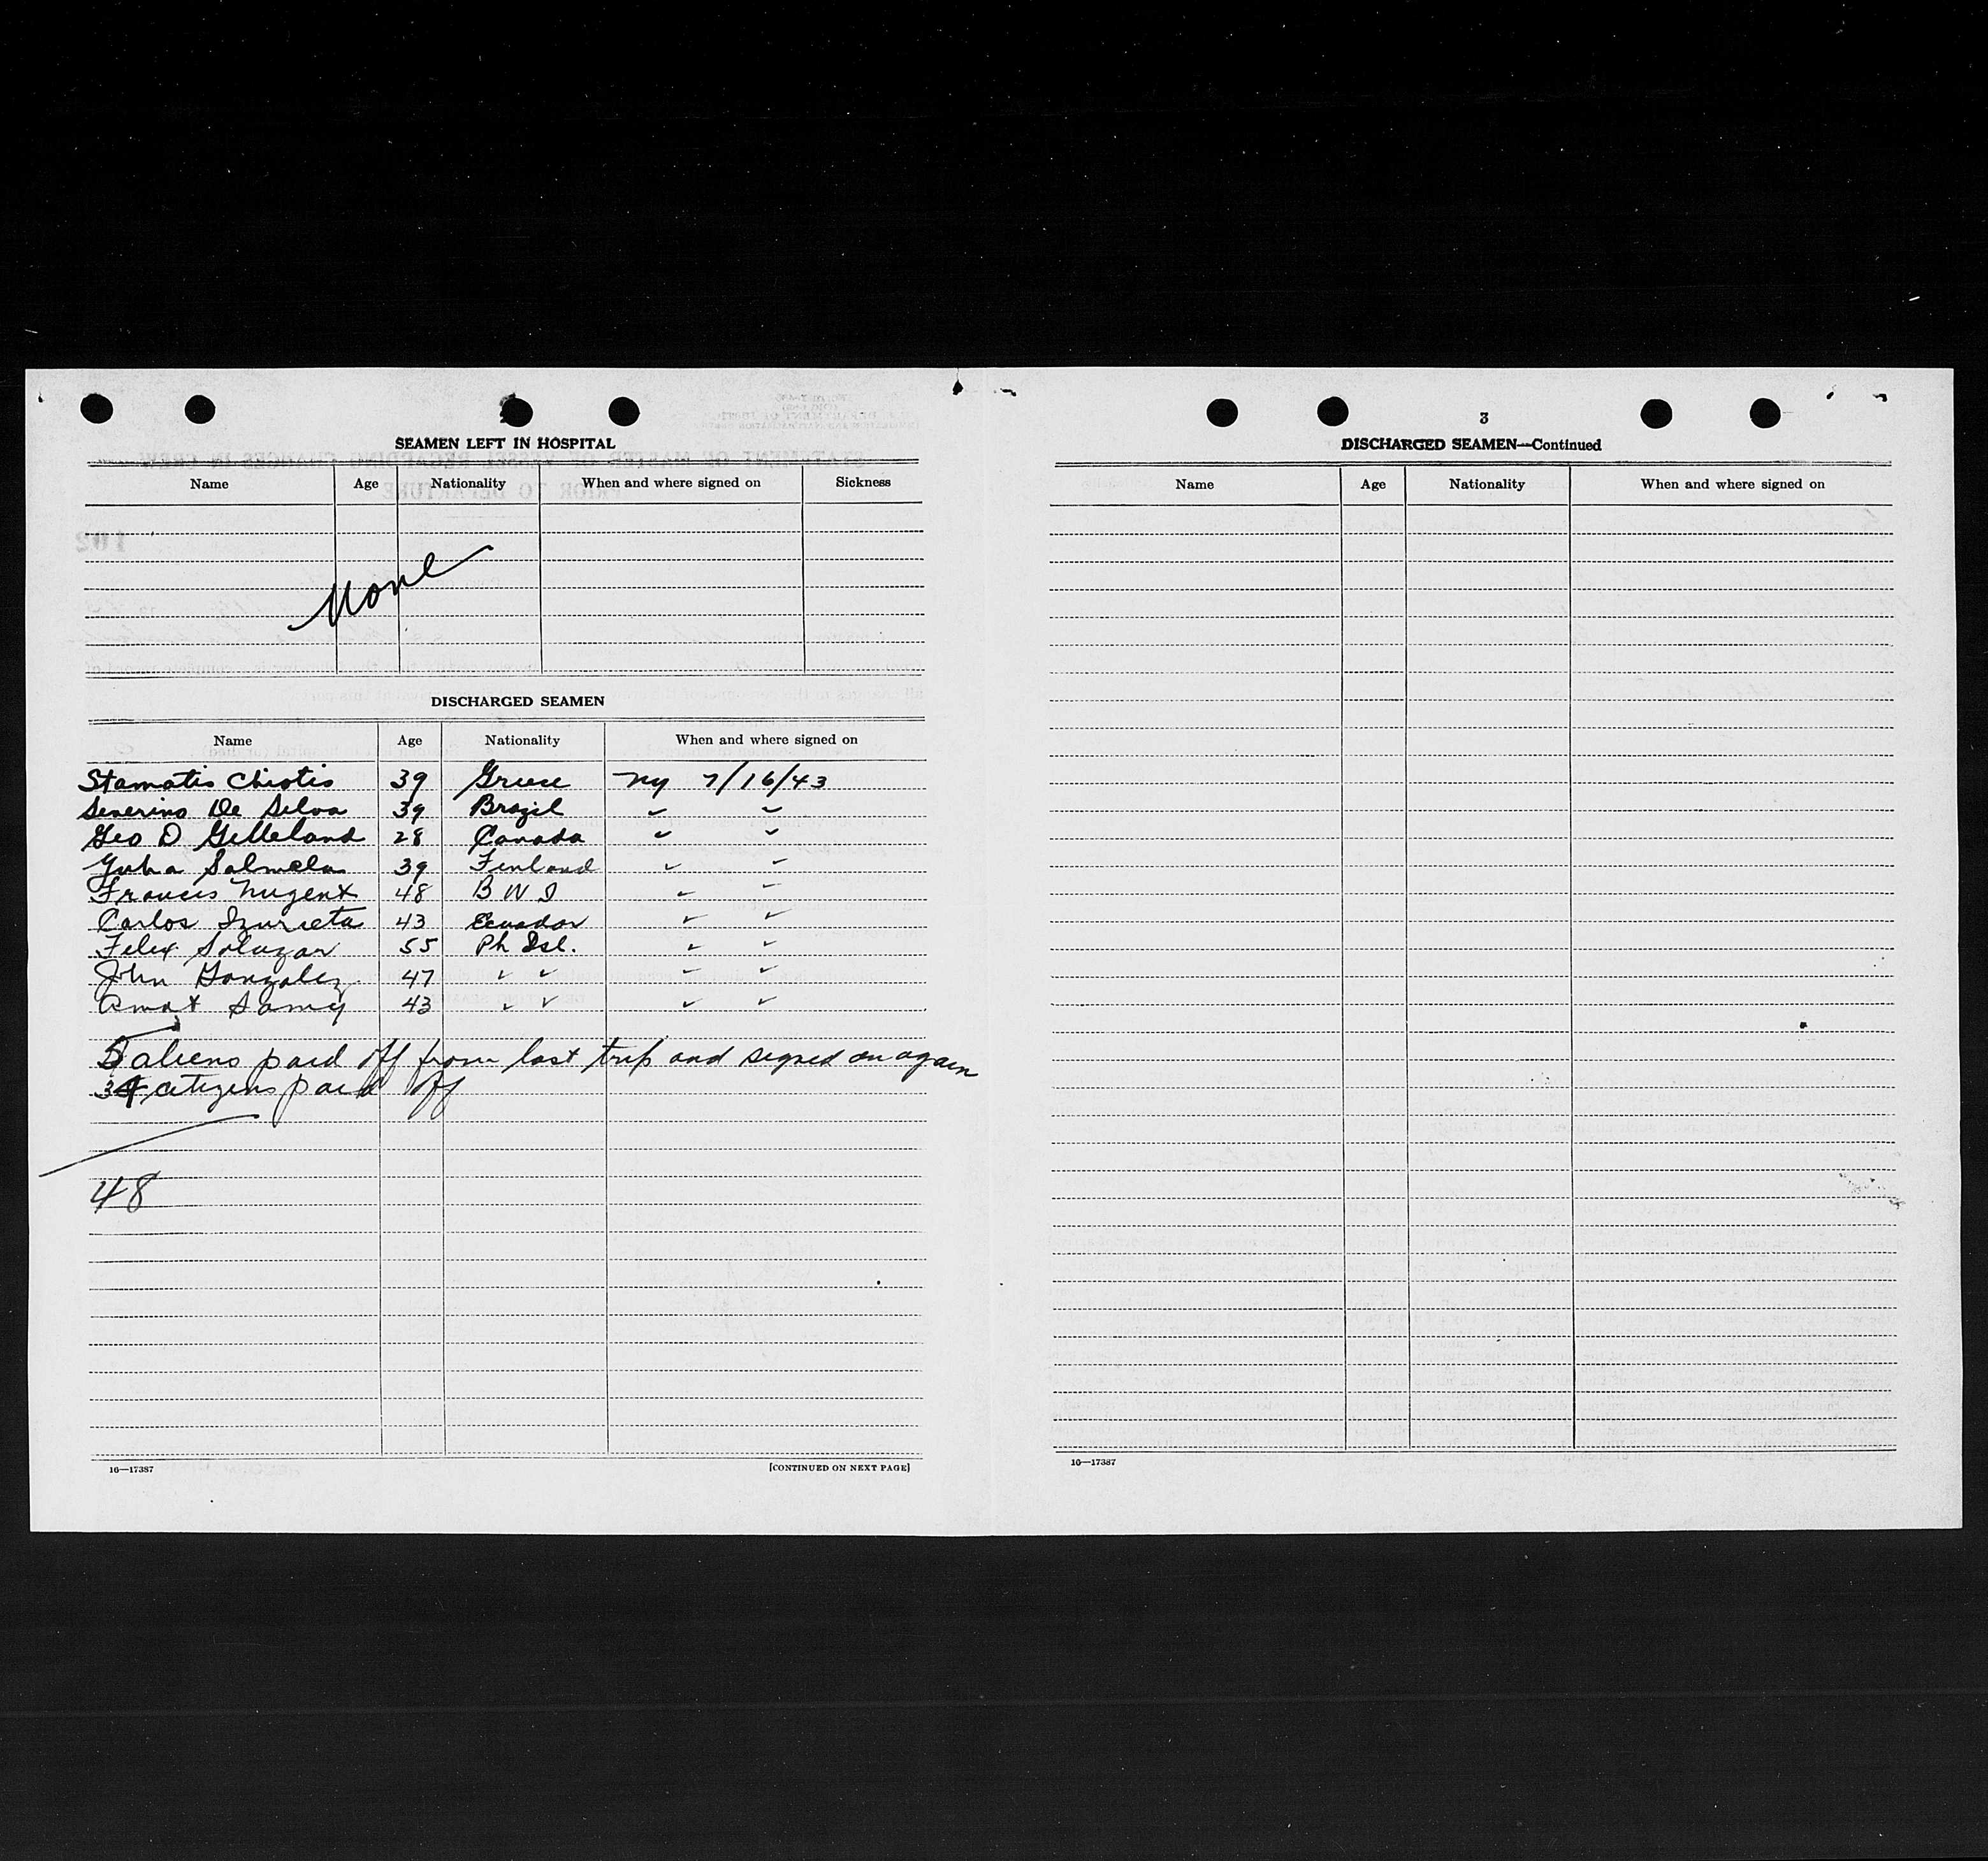 SEAMEN LEFT IN HOSPITAL
Name Age Nationality When and where signed on Sickness
None
DISCHARGED SEAMEN
Name Age Nationality When and where signed on
Stamatis Chiotis 39 Greece NY 7/16/43
Severino De Silva 39 Brazil " "
Geo D Gilleland 28 Canada " "
Juha Salmela 39 Finland " "
Francis Nugent 48 B W I " "
Carlos Izurieta 43 Ecuador " "
Felix Solazar 55 Ph Isl. " "
John Gonzalez 47 " " " "
Amat Samy 43 " " " "
5 aliens paid off from last trip and signed on again
34 citizens paid off
48
16—17387 [CONTINUED ON NEXT PAGE]
3
DISCHARGED SEAMEN—Continued
Name Age Nationality When and where signed on
16—17387